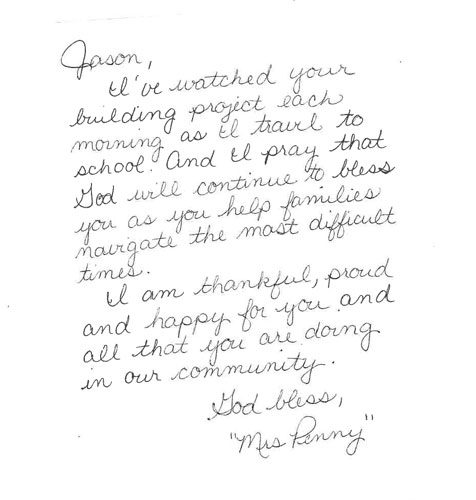 Jason,
I've watched your
building project each
morning as I travel to
school. And I pray that
God will continue to bless
you as you help families
navigate the most difficult
times.
I am thankful, proud
and happy for you and
all that you are doing
in our community.
God bless,
"Mrs Penny"